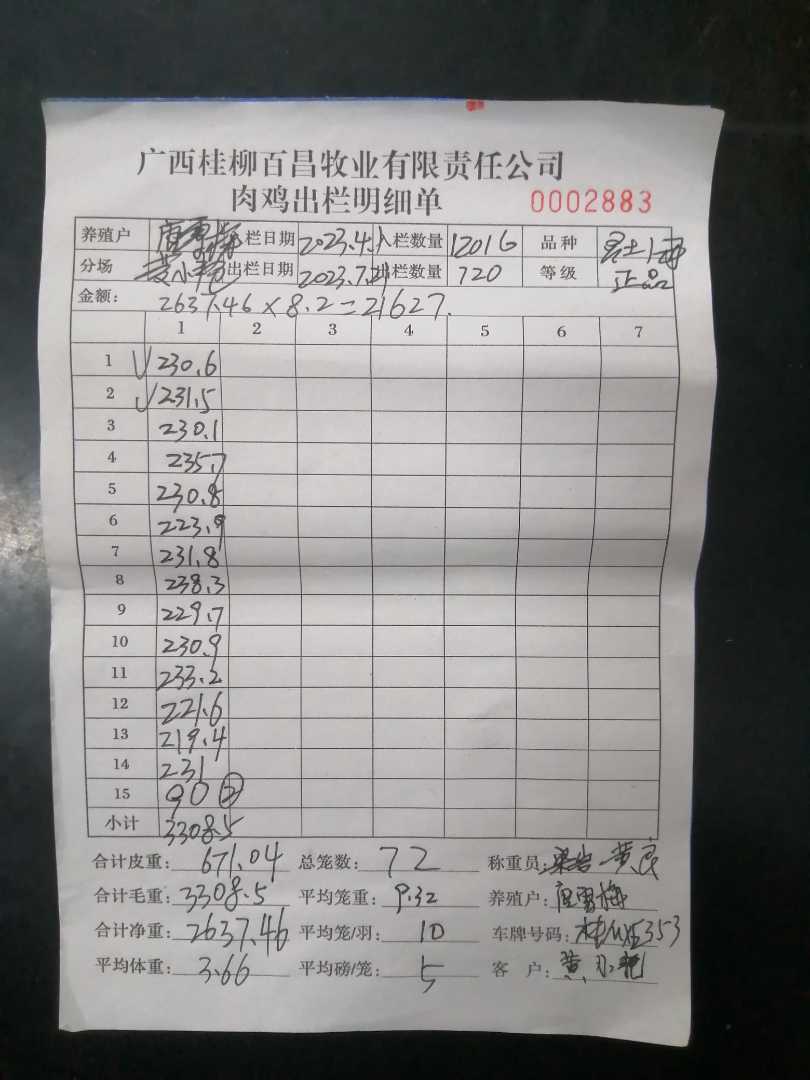 广西桂柳百昌牧业有限责任公司
肉鸡出栏明细单 0002883
养殖户 唐雪梅 入栏日期 2023.4.1 入栏数量 12016 品种
分场 出栏日期 2023.7.21 出栏数量 720 等级 正品
金额: 2637.46×8.2=21627.
1 2 3 4 5 6 7
1 230.6
2 231.5
3 230.1
4 235.7
5 230.8
6 223.9
7 231.8
8 238.3
9 229.7
10 230.9
11 233.2
12 221.6
13 219.4
14 231
15 90 ②
小计 3308.5
合计皮重: 671.04 总笼数: 72 称重员:
合计毛重: 3308.5 平均笼重: 9.32 养殖户: 唐雪梅
合计净重: 2637.46 平均笼/羽: 10 车牌号码:
平均体重: 3.66 平均磅/笼: 5 客 户: